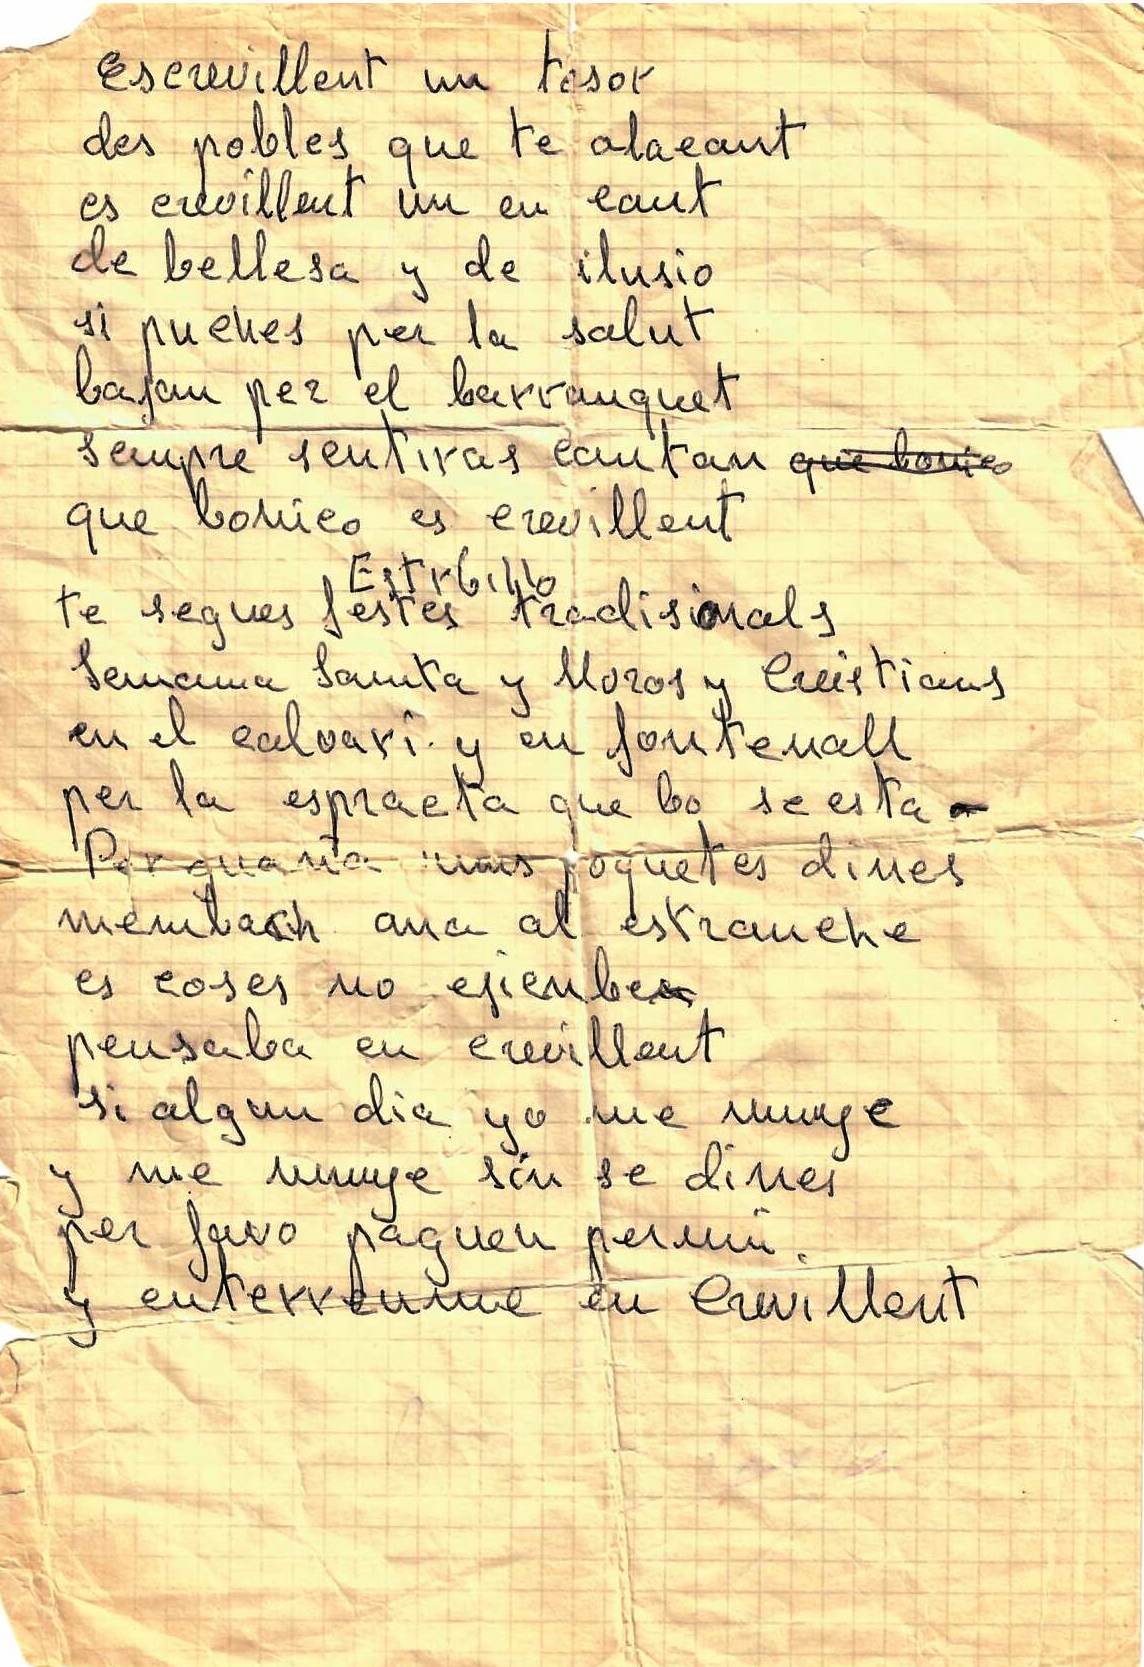 Escrevillent un tesor
des pobles que te alacant
es crevillent un en cant
de bellesa y de ilusio
si puches per la salut
bajan per el barranquet
sempre sentiras cantan que bonico
que bonico es crevillent
Estrbillo
te segues festes tradisionals
Semana Santa y Moros y Cristians
en el calvari y en fontenall
per la espraeta que bo se esta
Per guaña unas poquetes dines
membach ana al estranche
es coses no ejienbe
pensaba en crevillent
si algun dia yo me muye
y me muye sin se dines
per favo paguen permi.
y enterrenme en Crevillent